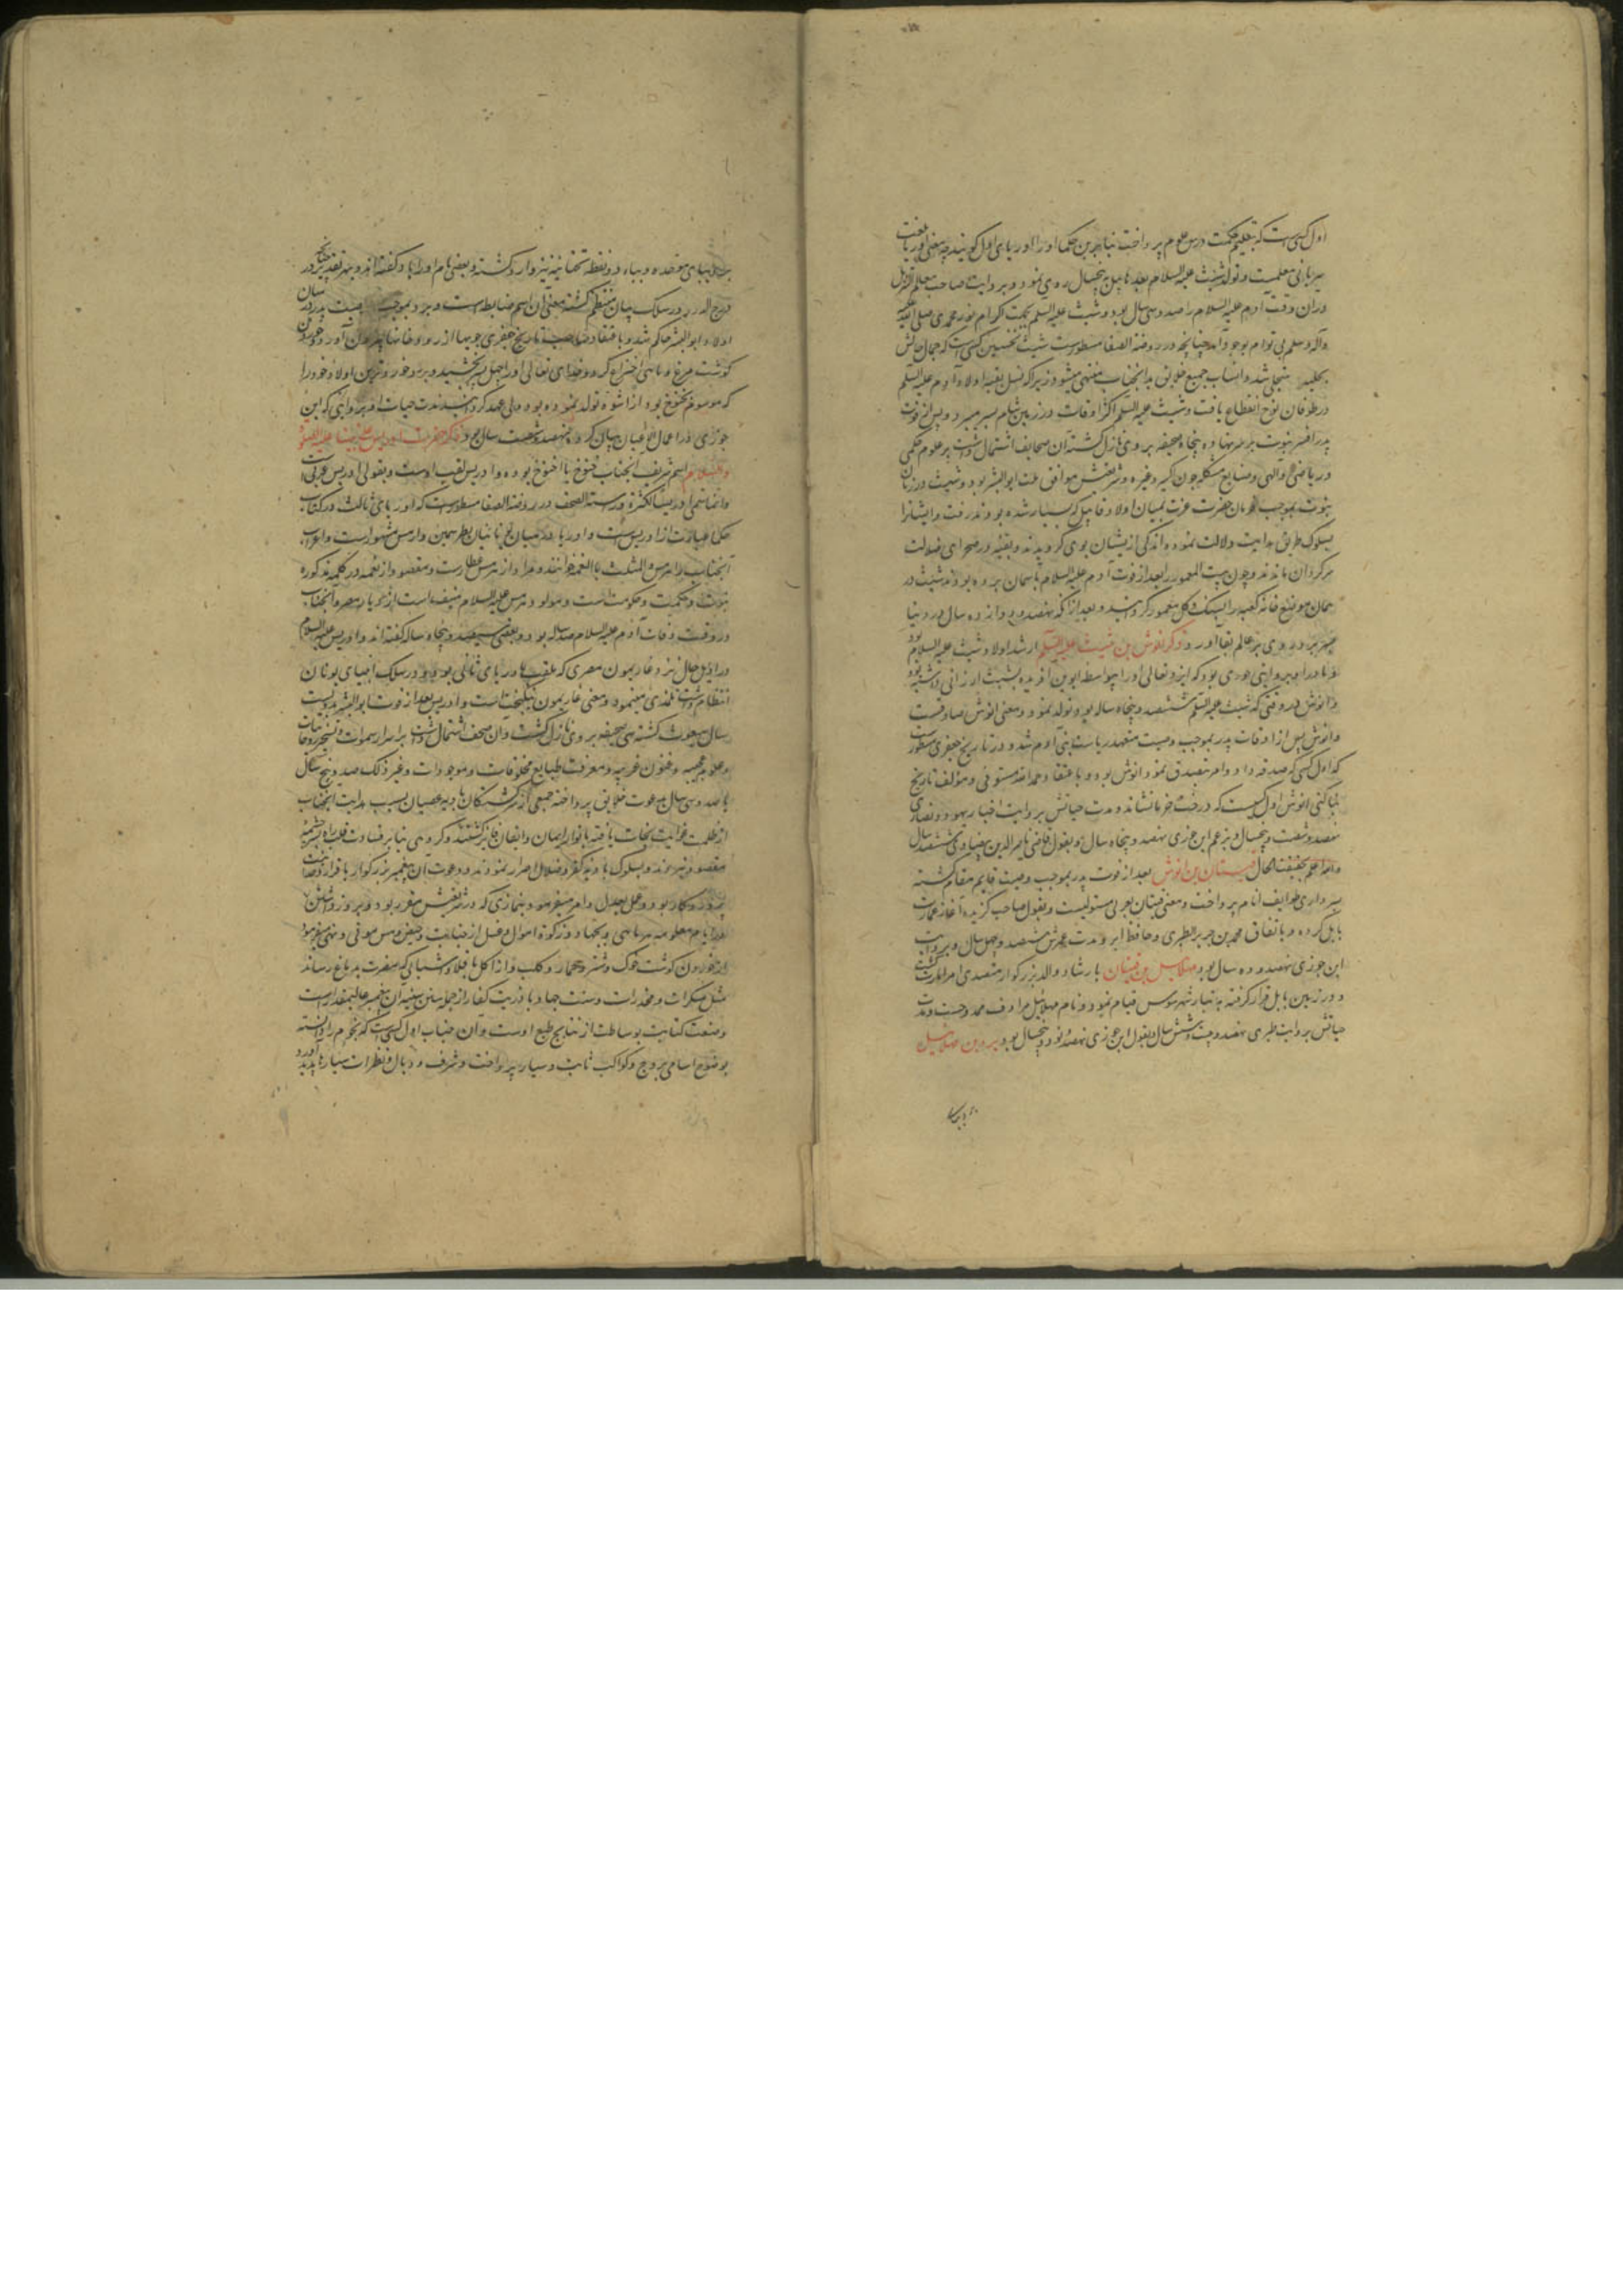 اول کسی است که بتعلیم حکمت و درس علوم پرداخت بنابرین حکما او را اوریای اول گویند چه معنی اوریا بلغت
سریانی معلمست و تولد شیث علیه السلام بعد از هابیل به پنجسال روی نمود و بروایت صاحب معالم التنزیل
در آن وقت آدم علیه السلام را صد و سی سال بود و شیث علیه السلم بجهت اکرام نور محمدی صلی الله علیه
وآله وسلم بی توام بوجود آمد چنانچه در روضه الصفا مسطورست شیث نخستین کسی است که جمال حالش
متجلی شد و انساب جمیع خلایق بدانجناب منتهی میشود زیرا که نسل بقیه اولاد آدم علیه السلم
در طوفان نوح انقطاع یافت و شیث علیه السلم اکثر اوقات در زمین شام بسر میبرد و پس از فوت
پدر افسر نبوت بر سر نهاده پنجاه صحیفه بر وی نازل گشته آن صحایف اشتمال داشت بر علوم حکمی
و ریاضی و الهی و صنایع مشکله چون اکسیر و غیره و شریعتش موافق ملت ابوالبشر بود و شیث در زمان
نبوت بموجب فرمان حضرت عزت بمیان اولاد قابیل که بسیار شده بودند رفت و ایشانرا
بسلوک طریق هدایت دلالت نمود و اندکی ازیشان بوی گرویدند و بقیه در صحرای ضلالت
سرگردان ماندند و چون بیت المعمور را بعد از فوت آدم علیه السلام بآسمان برده بودند شیث در
همان موضع خانه کعبه را بسنگ و گل معمور گردانید و بعد از آنکه نهصد و دوازده سال در دنیا
بسر برد روی بعالم بقا آورد ذکر انوش بن شیث علیه السلم ارشد اولاد شیث علیه السلام بود
و مادر او بروایتی حوری بود که ایزد تعالی او را بیواسطه ابوین آفریده بشیث ارزانی داشته بود
و انوش در وقتی که شیث علیه السلم ششصد و پنجاه ساله بود تولد نمود و معنی انوش صادقست
و انوش پس از وفات پدر بموجب وصیت متعهد ریاست بنی آدم شد و در تاریخ جعفری مسطور است
که اول کسی که صدقه داد و امر بتصدق نمود انوش بود و باعتقاد حمد الله مستوفی و مؤلف تاریخ
بناکتی انوش اول کسیست که درخت خرما نشاند و مدت حیاتش بروایت اخبار یهود و نصاری
نهصد و شصت و پنجسال و بزعم ابن جوزی نهصد و پنجاه سال و بقول قاضی ناصر الدین بیضاوی ششصد سال
والله اعلم بحقیقت الحال قینان بن انوش بعد از فوت پدر بموجب وصیت قایم مقام گشته
بسرداری طوایف انام پرداخت و معنی قینان بعربی مستولیست و بقول صاحب گزیده آغاز عمارت
بابل کرده و باتفاق محمد بن جریر الطبری و حافظ ابرو مدت عمرش ششصد و چهل سال و بروایت
ابن جوزی نهصد و ده سال بود مهلائیل بن قینان بارشاد والد بزرگوار متصدی امر امارت گشت
و در زمین بابل قرار گرفته به بنیاد شهر سوس قیام نمود و نام مهلائیل مرادف ممدوحست و مدت
حیاتش بروایت طبری نهصد و بیست و شش سال بقول ابن جوزی نهصد و نود و پنجسال بود یرد بن مهلائیل
کوشت مرغ و ماهی اختراع کرد و خدای تعالی او را چهل پسر بخشید و یرد خوردترین اولاد خود را
که موسوم باخنوخ بود ولی عهد گردانید مدت حیات او بروایتی که ابن
جوزی در اعمال الاعیان بیان کرده نهصد و شصت سال بود ذکر حضرت ادریس علی نبینا علیه الصلوة
والسلام اسم شریف آنجناب خنوخ یا اخنوخ بوده و ادریس لقب اوست و بقولی ادریس عربی است
وانما سمی ادریسا لکثرة درسته الصحف در روضة الصفا مسطورست که اوریای ثالث در کتب
حکما عبارت از ادریس است و او را در میان یونانیان بطرسمین و ارمس مشهورست و اعراب
آنجناب را هرمس و المثلث بالنعمه خوانند و مراد از هرمس عطاردست و مقصود از نعمه در کلمه مذکوره
نبوت و حکمت و حکومت است و مولود هرمس علیه السلام منیف است از دیار مصر و آنجناب
در وقت وفات آدم علیه السلام صد ساله بود و بعضی سیصد و پنجاه ساله گفته اند و ادریس علیه السلام
در اوایل حال نزد غاریمون مصری که بلقب باوریای ثانی بود و در سلک انبیای یونان
انتظام داشت تلمذ می نمود و معنی غاریمون نیکبخت است و ادریس بعد از فوت ابوالبشر بدویست
سال مبعوث گشته سی صحیفه بر وی نازل گشت و آن صحف اشتمال داشت بر اسرار سموات و تسخیر روحانیات
و علوم عجیبه و فنون غریبه و معرفت طبایع مخلوقات و موجودات و غیر ذلک صد و پنج سال
یا صد و سی سال بدعوت خلایق پرداخته جمعی از سرگشتگان بادیه عصیان بسبب هدایت آنجناب
از ظلمت غوایت نجات یافته بانوار ایمان و ایقان فایز گشتند و گروهی بنابر قساوت قلب راه بسر چشمه
مقصود نبردند و بسلوک بادیه کفر و ضلال اصرار نمودند و دعوت آن پیغمبر بزرگوار باقرار وحدانیت
پروردگار بود و عمل بعدل و امر میفرمود بنمازی که در شریعتش مقرر بود و بروزه داشتن
در ایام معلومه هر ماهی و بجهاد و زکوة اموال و غسل از جنابت و حیض و مس موتی و نهی میفرمود
از خوردن گوشت خوک و شتر و حمار و کلب و از اکل باقلا و اشیائی که مضرت بدماغ رساند
مثل مسکرات و مخدرات و سنت جهاد با ذریت کفار از جمله سنن سنیه آن پیغمبر عالیمقدار است
و صنعت کتابت بوساطت از نتایج طبع اوست و آن جناب اول کسی است که نجوم را دانسته
بوضع اسامی بروج و کواکب ثابت و سیار پرداخت و شرف و وبال و نظرات سیارها پدید آورد